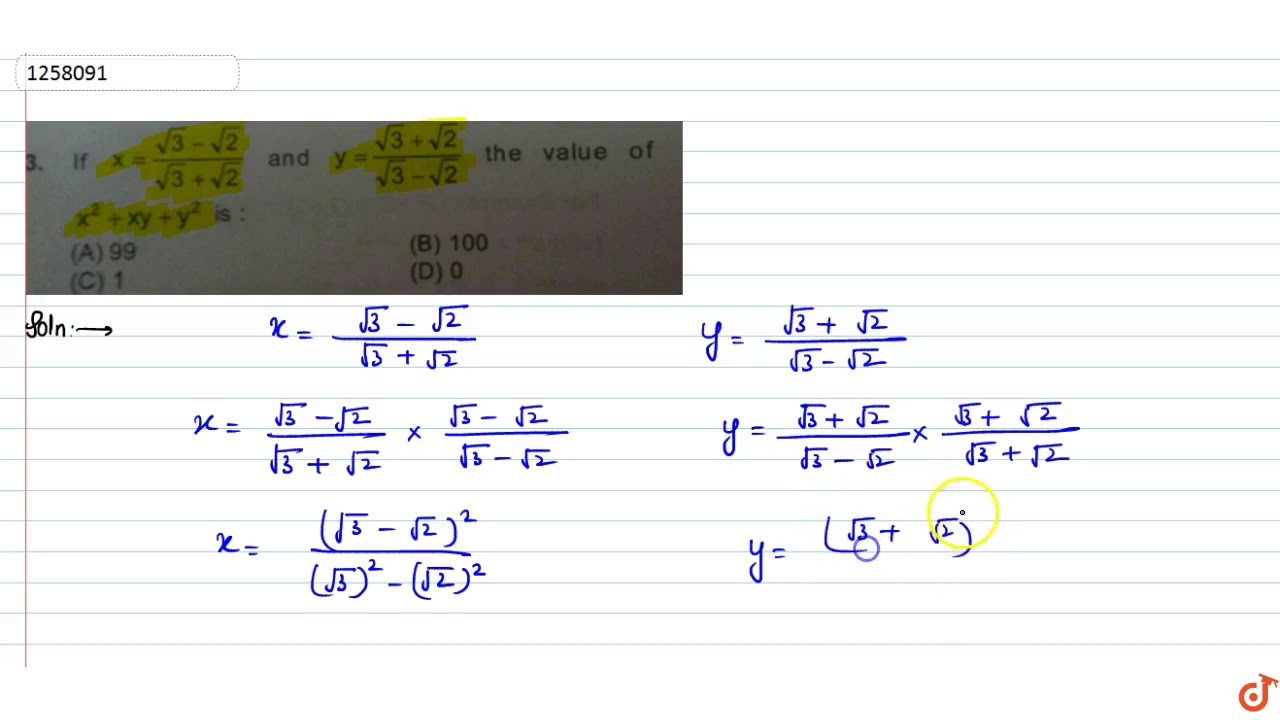 1258091
3. If x = (√3 − √2)/(√3 + √2) and y = (√3 + √2)/(√3 − √2) the value of
x² + xy + y² is :
(A) 99 (B) 100
(C) 1 (D) 0
Soln: → x = (√3 − √2)/(√3 + √2) y = (√3 + √2)/(√3 − √2)
x = (√3 − √2)/(√3 + √2) × (√3 − √2)/(√3 − √2) y = (√3 + √2)/(√3 − √2) × (√3 + √2)/(√3 + √2)
x = (√3 − √2)²/((√3)² − (√2)²) y = (√3 + √2)